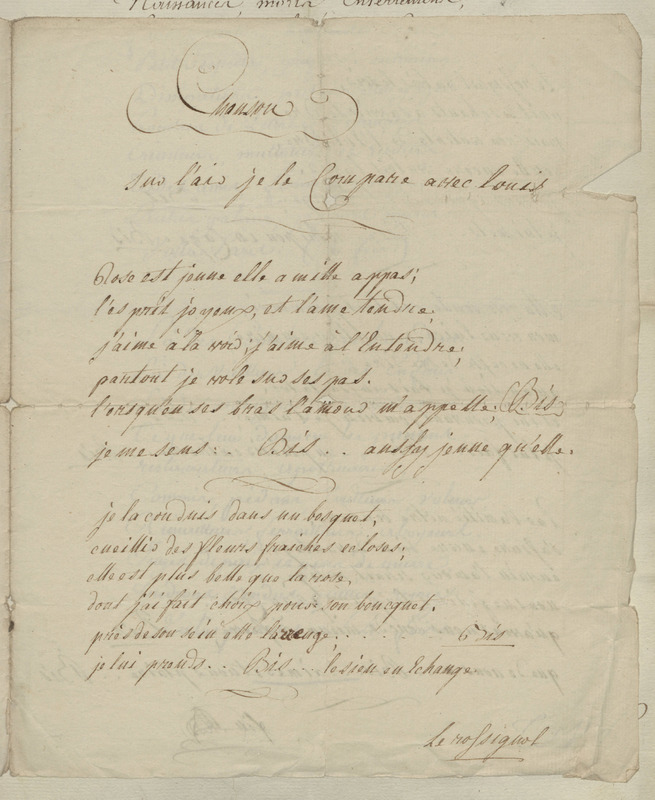 morts Enterrements,
Chanson
sur l'air je le Compare avec louis
Rose est jeune elle a mille appas;
l'esprit joyeux, et l'ame tendre;
j'aime à la voir; j'aime à l'Entendre;
partout je vole sur ses pas.
lorsqu'en ses bras l'amour m'appelle; (Bis)
je me sens . . Bis . . aussy jeune qu'elle.
je la conduis dans un bosquet,
cueillir des fleurs fraiches ecloses;
elle est plus belle que la rose,
dont j'ai fait choix pour son boucquet.
près de son sein elle l'arrenge . . . . Bis
je lui prends . . Bis . . le sien en Echange
Le rossignol